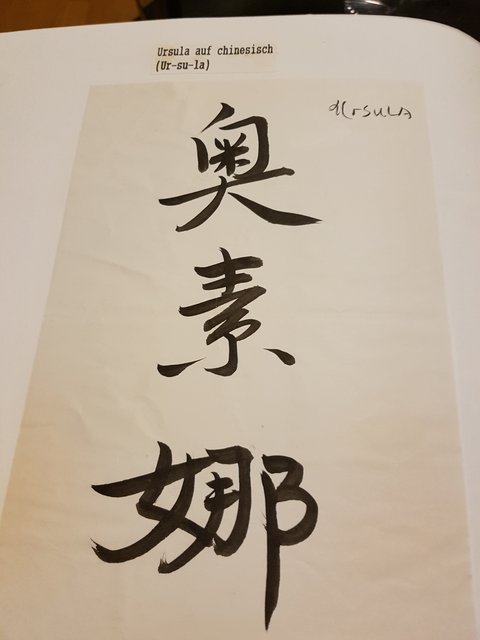 Ursula auf chinesisch
(Ur-su-la)
Ursula
奥
素
娜